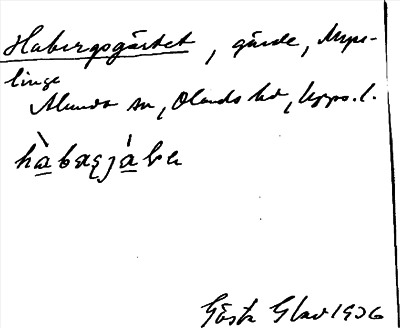 Habergsgärdet, gärde, Myse-
linge
Alunda sn, Olands hd, Upps. l.
hàbærjábe
Gösta Glad 1936